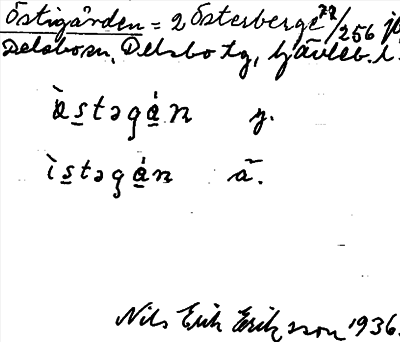 Östigården = 2 Österberge 72/256 jo
Delsbosn, Delsbo tg, Gävleb. l.
ὰs̲təgá̲n y.
ı̀s̲təgá̲n ā.
Nils Erik Eriksson 1936.